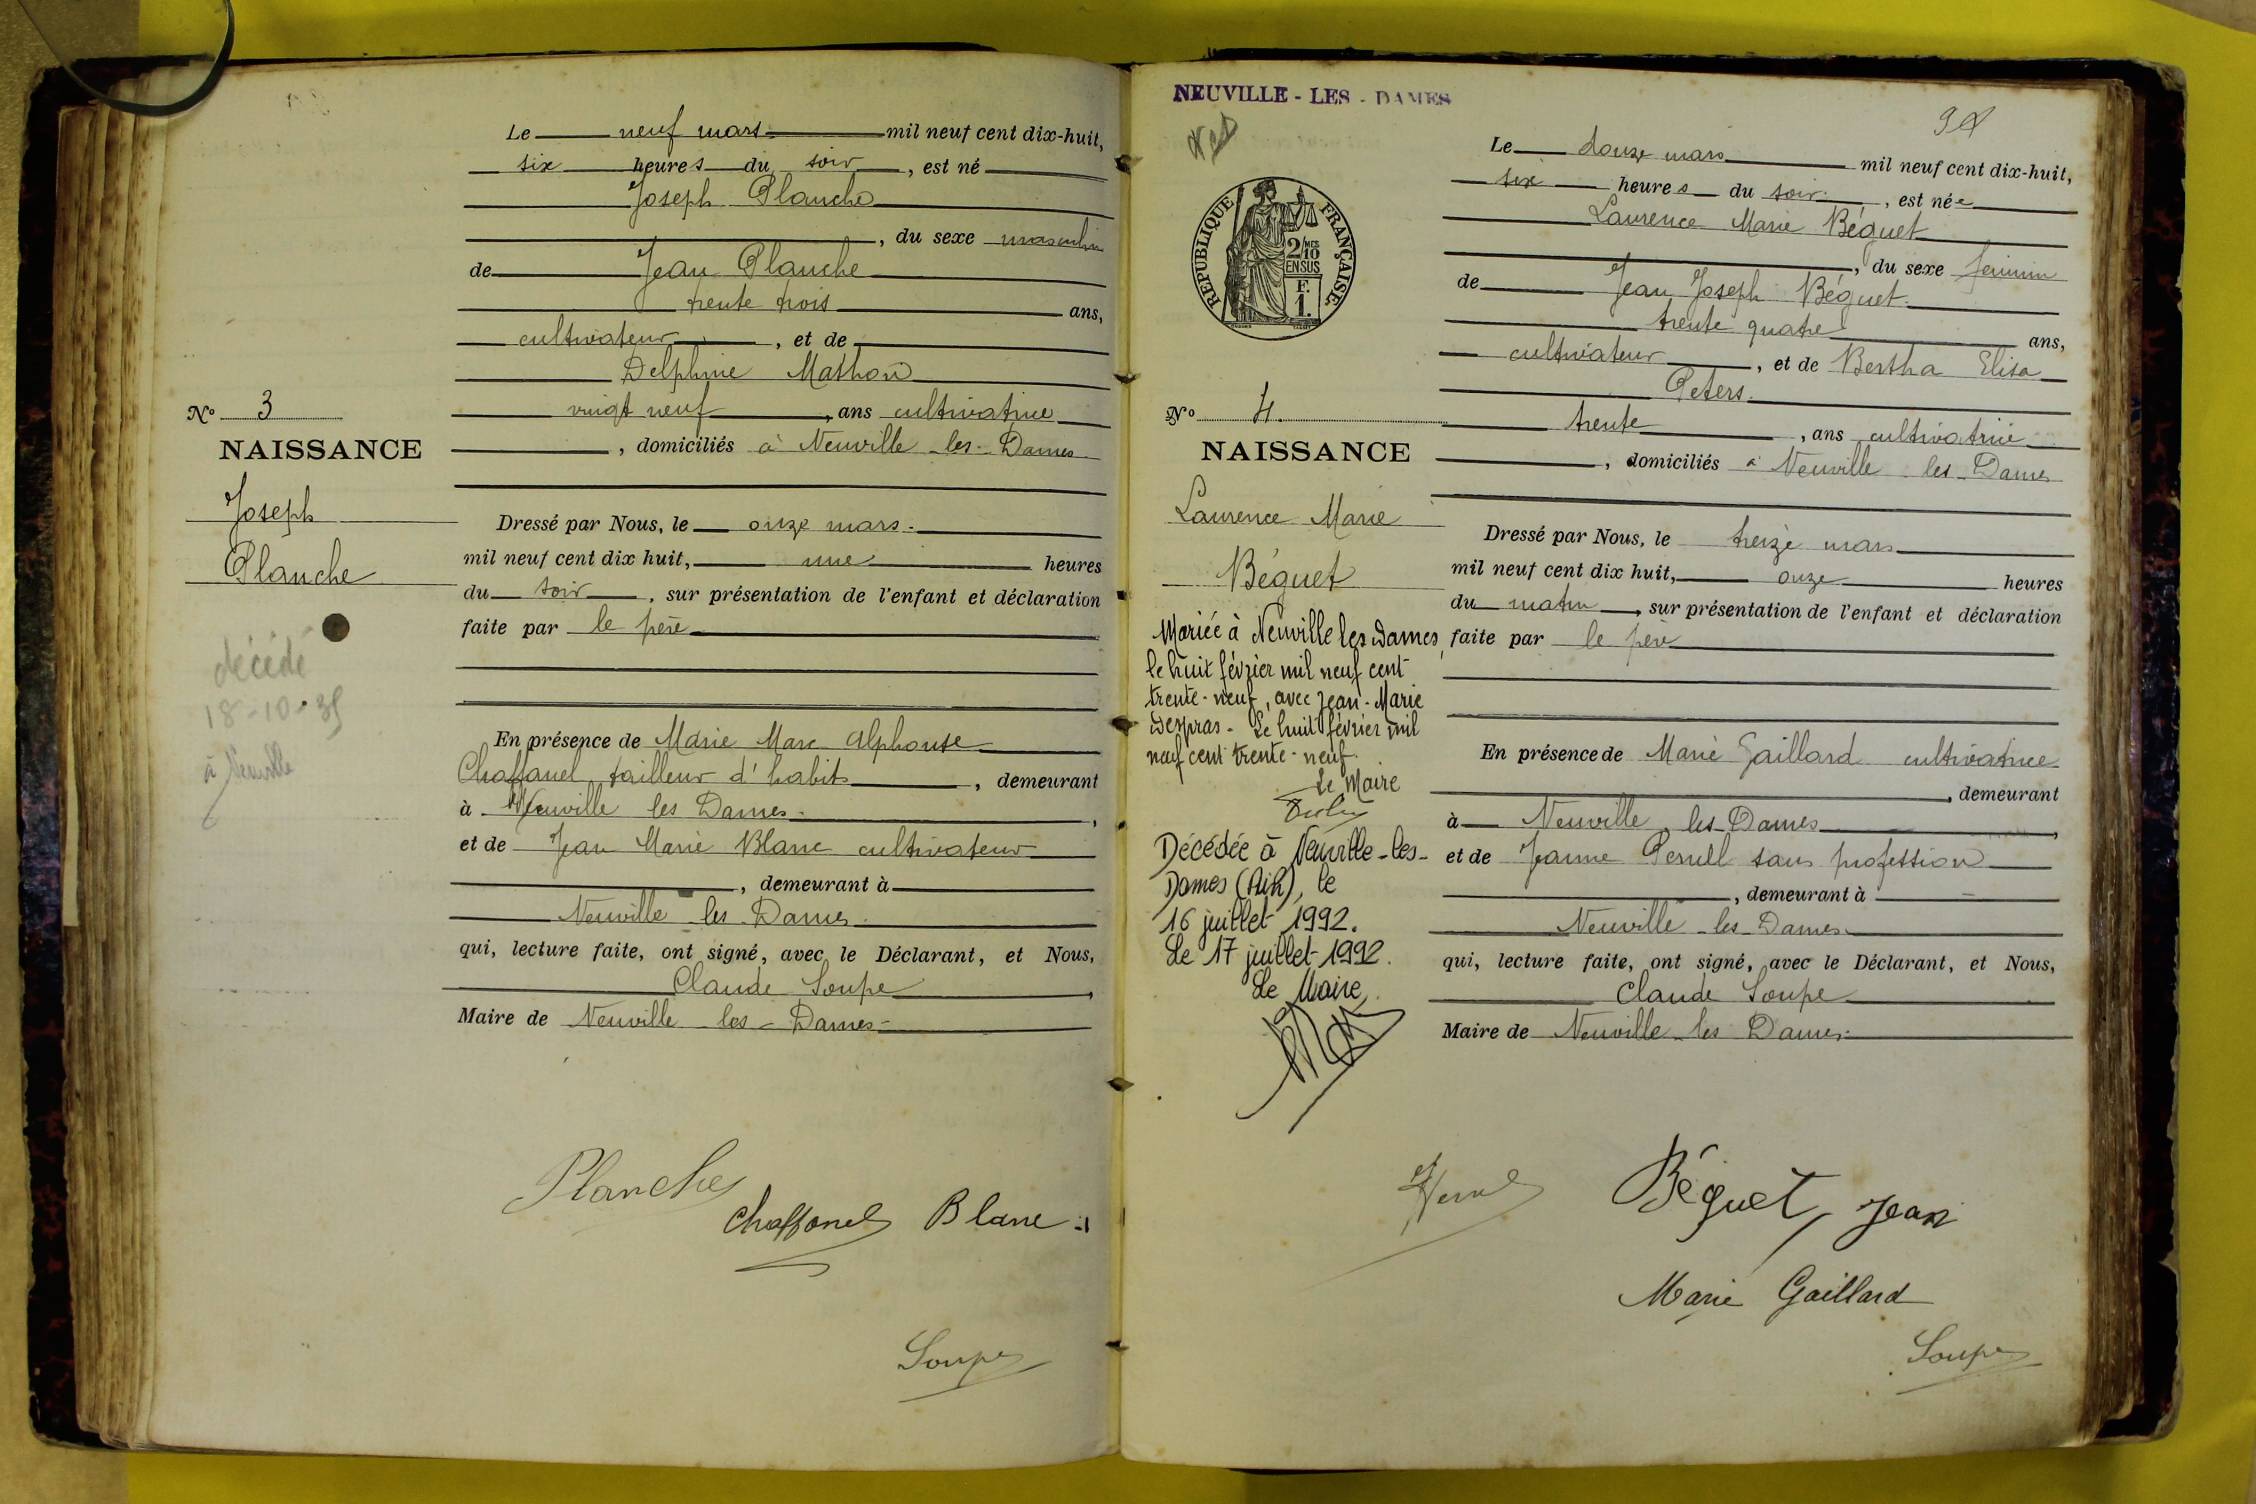 Le neuf mars mil neuf cent dix-huit,
six heures du soir, est né
Joseph Planche
, du sexe masculin
de Jean Planche
trente trois ans,
cultivateur, et de
Delphine Mathon
vingt neuf, ans cultivatrice
, domiciliés à Neuville les Dames
Dressé par Nous, le onze mars
mil neuf cent dix huit, une heures
du soir, sur présentation de l'enfant et déclaration
faite par le père
En présence de Marie Marc Alphonse
Chaffanel tailleur d'habits, demeurant
à Neuville les Dames,
et de Jean Marie Blanc cultivateur
, demeurant à
Neuville les Dames
qui, lecture faite, ont signé, avec le Déclarant, et Nous,
Claude Soupe,
Maire de Neuville les Dames
No 3
NAISSANCE
Joseph
Planche
décédé
18-10-35
à Neuville
Planche
Chaffanel Blanc
Soupe
NEUVILLE - LES - DAMES
RÉPUBLIQUE FRANÇAISE
2/10
MES
EN SUS
F.
1.
Le douze mars mil neuf cent dix-huit,
six heures du soir, est née
Laurence Marie Béguet
, du sexe féminin
de Jean Joseph Béguet
trente quatre ans,
cultivateur, et de Bertha Elisa
Peters
trente, ans cultivatrice
, domiciliés à Neuville les Dames
Dressé par Nous, le treize mars
mil neuf cent dix huit, onze heures
du matin, sur présentation de l'enfant et déclaration
faite par le père
En présence de Marie Gaillard cultivatrice
, demeurant
à Neuville les Dames,
et de Jeanne sans profession
, demeurant à
Neuville les Dames
qui, lecture faite, ont signé, avec le Déclarant, et Nous,
Claude Soupe
Maire de Neuville les Dames
No 4.
NAISSANCE
Laurence Marie
Béguet
Mariée à Neuville les Dames,
le huit février mil neuf cent
trente-neuf, avec Jean-Marie
Despras - Le huit février mil
neuf cent trente-neuf.
Le Maire
Décédée à Neuville-les-
Dames (Ain), le
16 juillet 1992.
Le 17 juillet 1992.
Le Maire,
Béguet, Jean
Marie Gaillard
Soupe